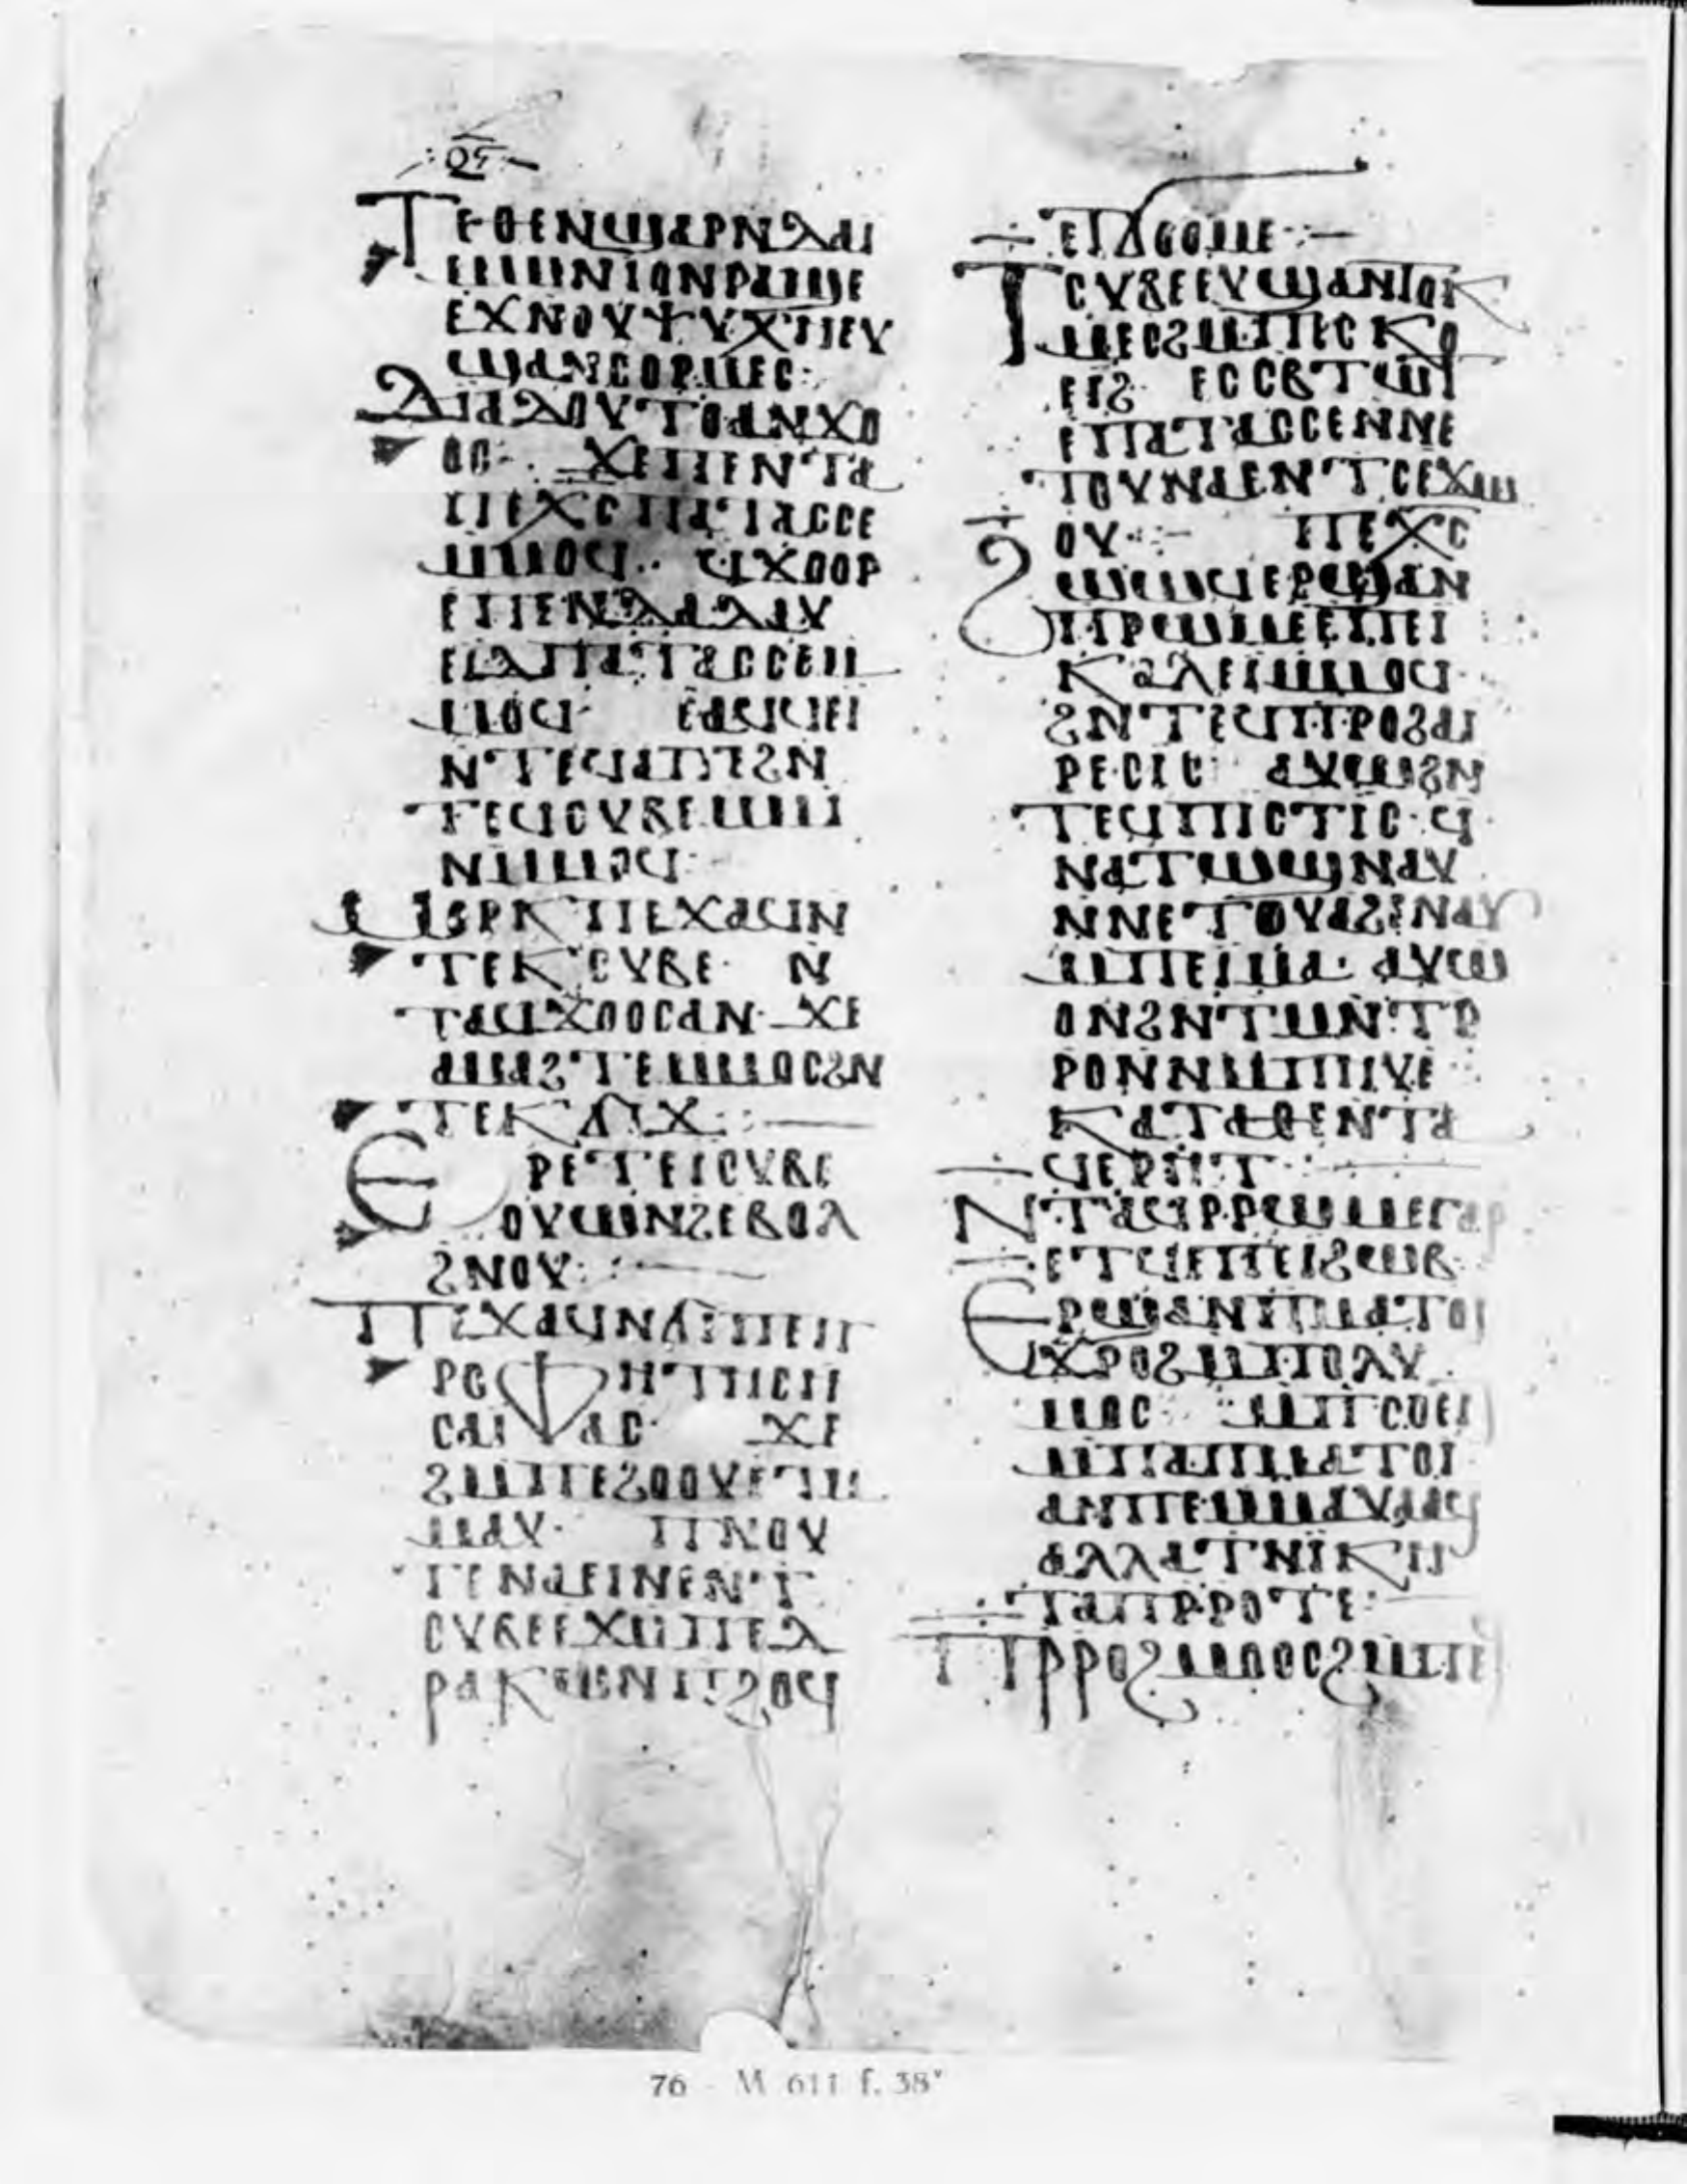 ϤϚ
ⲦⲈⲐⲈⲚϢⲀⲢⲚⲆⲀⲒ
ⲘⲰⲚⲒⲞⲚⲢⲀϢⲈ
ⲈϪⲚⲞⲨⲮⲨⲬⲎⲈⲨ
ϢⲀⲚⲤⲞⲢⲘⲈⲤ
ⲆⲒⲀⲖⲞⲨⲦⲞⲀⲚϪⲞ
ⲞⲤ ϪⲈⲠⲈⲚⲦⲀ
ⲠⲈⲬⲤⲠⲀⲦⲀⲤⲤⲈ
ⲘⲘⲞϤ ϤϪⲞⲞⲢ
ⲈⲠⲈⲚⲆⲀⲀⲨ
ⲈⲀⲠⲀⲦⲀⲤⲤⲈⲘ
ⲘⲞϤ ⲈⲀϤϤⲈⲒ
ⲚⲦⲈϤⲀⲠⲈϨⲚ
ⲦⲈϤⲤⲨⲂⲈⲘⲘⲒ
ⲚⲘⲘⲞϤ
ⲰⲢⲔ ⲠⲈϪⲀϤⲚ
ⲦⲈⲔⲤⲨⲂⲈ Ⲛ
ⲦⲀϤϪⲞⲞⲤⲀⲚ ϪⲈ
ⲀⲘⲀϨⲦⲈⲘⲘⲞⲤϨⲚ
ⲦⲈⲔϬⲒϪ
ⲈⲢⲈⲦⲈⲒⲤⲨⲂⲈ
ⲞⲨⲰⲚϨⲈⲂⲞⲖ
ϨⲚⲞⲨ
ⲠⲈϪⲀϤⲚϬⲒⲠⲈⲠ
ⲢⲞⲪⲎⲦⲎⲤⲎ
ⲤⲀⲒⲀⲤ ϪⲈ
ϨⲘⲠⲈϨⲞⲞⲨⲈⲦⲘ
ⲘⲀⲨ ⲠⲚⲞⲨ
ⲦⲈⲚⲀⲈⲒⲚⲈⲚⲦ
ⲤⲨⲂⲈⲈϪⲘⲠⲈⲆ
ⲢⲀⲔⲰⲚⲠϨⲞϤ
ⲈⲦϬⲞⲞⲘⲈ
ⲦⲤⲨⲂⲈⲈⲨϢⲀⲚⲦⲞⲔ
ⲘⲈⲤϨⲘⲠⲈⲤⲔⲞ
ⲈⲒϨ ⲈⲤⲤⲂⲦⲰⲦ
ⲈⲠⲀⲦⲀⲤⲤⲈⲚⲚⲈ
ⲦⲞⲨⲚⲀⲈⲚⲦⲤⲈϪⲰ
ⲞⲨ ⲠⲈⲬⲤ
ϨⲰⲰϤⲈⲢϢⲀⲚ
ⲠⲢⲰⲘⲈⲈⲠⲈⲒ
ⲔⲀⲖⲈⲒⲘⲘⲞϤ
ϨⲚⲦⲈϤⲠⲢⲞϨⲀⲒ
ⲢⲈⲤⲒⲤ ⲀⲨⲰϨⲚ
ⲦⲈϤⲠⲒⲤⲦⲒⲤ Ϥ
ⲚⲀⲦⲰϢⲚⲀⲨ
ⲚⲚⲈⲦⲞⲨⲀϨⲈⲚⲀⲨ
ⲘⲠⲈⲒⲘⲀ ⲀⲨⲰ
ⲞⲚϨⲚⲦⲘⲚⲦⲢ
ⲢⲞⲚⲚⲘⲠⲎⲨⲈ
ⲔⲀⲦⲀⲐⲈⲚⲦⲀ
ϤⲈⲢⲎⲦ
ⲚⲦⲀϤⲢⲢⲰⲘⲈⲄⲀⲢ
ⲈⲦⲂⲈⲠⲈⲒϨⲰⲂ
ⲈⲢϢⲀⲚⲠⲘⲀⲦⲞⲒ
ϪⲢⲞϨⲘⲠⲠⲞⲖⲨ
ⲘⲞⲤ ⲘⲠⲤⲞⲈⲒ
ⲦⲘⲠⲀⲠⲘⲀⲦⲞⲒ
ⲀⲚⲠⲈⲘⲀⲨⲀⲀϤ
ⲀⲖⲖⲀⲦⲚⲒⲔⲎ
ⲦⲀⲠⲢⲢⲞⲦⲈ
ⲠⲢⲢⲞϨⲘⲞⲞⲤϨⲘⲠⲈ
76 - M 611 f. 38ᵛ